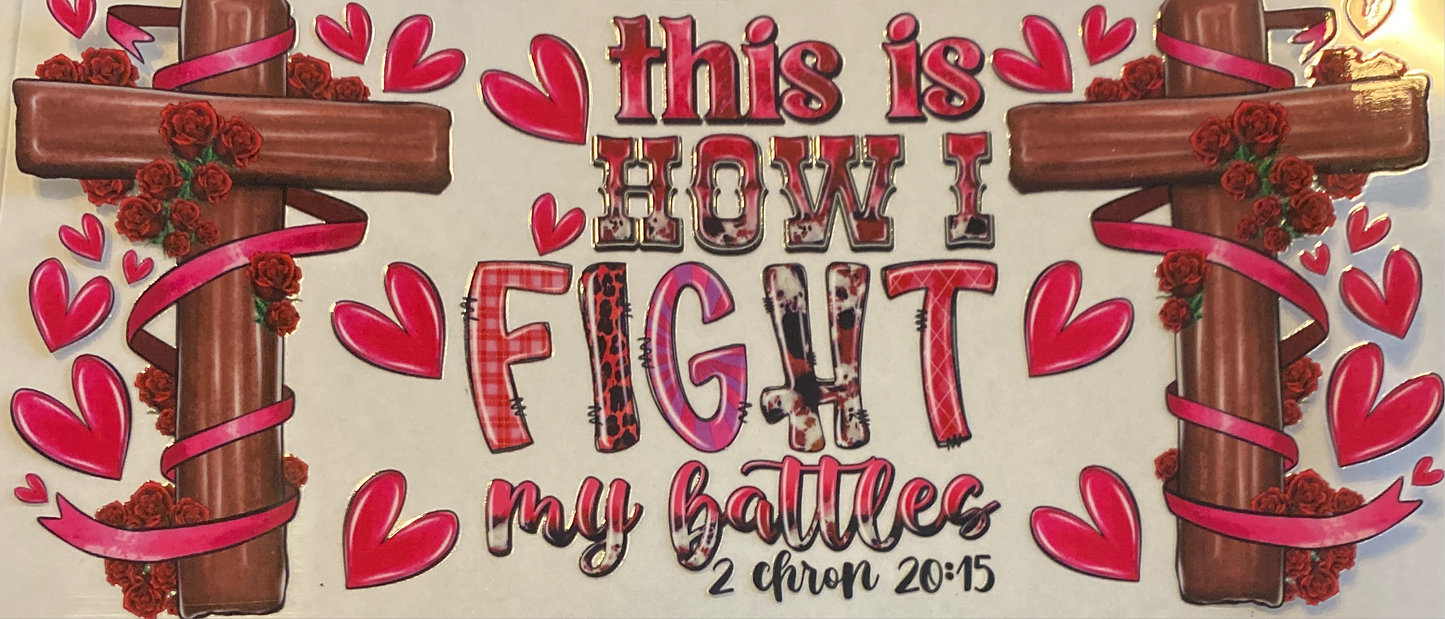 this is
HOW I
FIGHT
my battles
2 chron 20:15